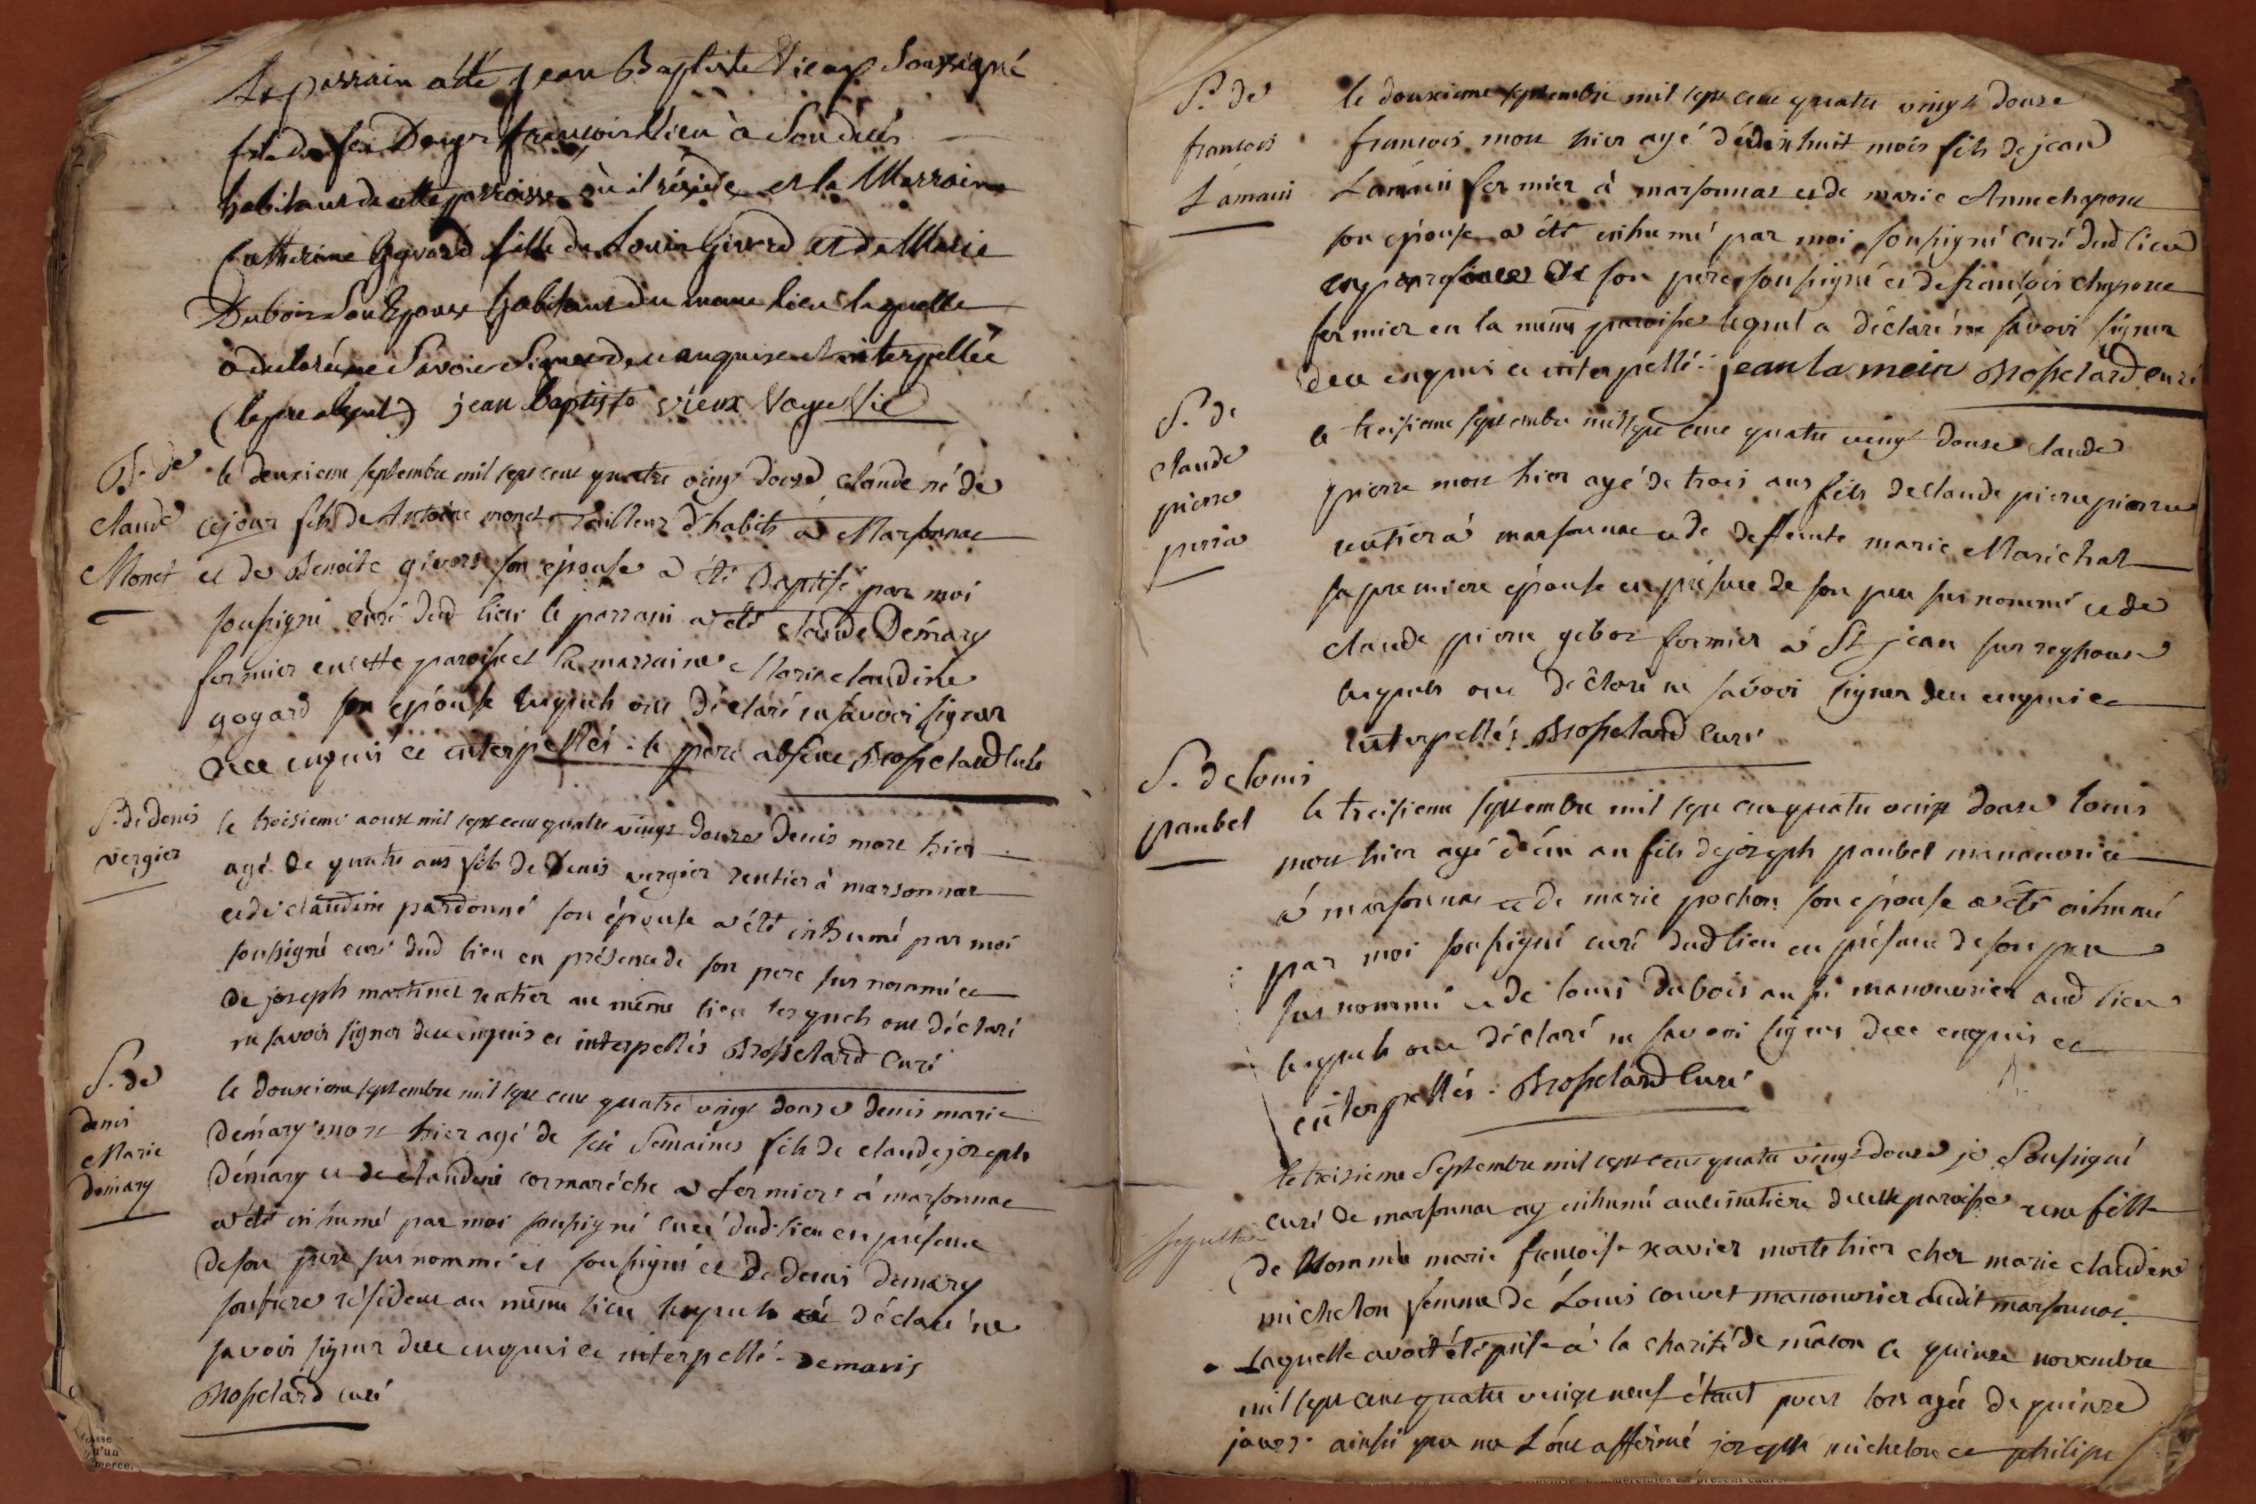 Le parrain a été jean Baptiste Vieux Soussigné
habitant de cette parroisse où il réside et la Marraine
Catherine Girard fille de Louis Girard et de Marie
Dubois son Epouse habitant du meme lieu laquelle
a declaré ne Savoir Signer de ce enquise et interpellée
(le pere absent) jean baptiste vieux
B. de
claude
Monet
le deuxieme septembre mil sept cent quatre vingt douze claude né de
ce jour fils de Antoine monet tailleur d'habits à Marsonnac
et de Benoite givord son épouse a été baptisé par moi
soussigné curé dud lieu le parrain a été claude Démary
fermier en cette paroisse et la marraine Marie claudine
gogard son épouse lesquels ont déclaré ne savoir signer
de ce enquis et interpellés . le pere absent Brosselard curé
S. de denis
vergier
le troisieme aoust mil sept cent quatre vingt douze denis mort hier
agé de quatre ans fils de denis vergier rentier à marsonnac
et de claudine pardonné son épouse a été inhumé par moi
soussigné curé dud lieu en présence de son pere sus nommé et
de joseph martinet rentier au même lieu lesquels ont déclaré
ne savoir signer de ce enquis et interpellés Brosselard curé
S. de
denis
Marie
demary
le douxieme septembre mil sept cent quatre vingt douze denis marie
démary mort hier agé de six semaines fils de claude joseph
démary et de claudine cormaréche fermier à marsonnac
a été inhumé par moi soussigné curé dud. lieu en présence
de son pere sus nommé et soussigné et de denis demary
son frere résident au même lieu lequel déclaré ne
savoir signer de ce enquis et interpellé - demaris
Brosselard curé
S. de
francois
Lamain
le douxieme septembre mil sept cent quatre vingt douze
francois mort hier agé de dix huit mois fils de jean
Lamain fermier à marsonnac et de marie Anne chapone
son épouse a été inhumé par moi soussigné curé dud lieu
en présence de son pere soussigné et de françois chapone
fermier en la même paroisse lequel a déclaré ne savoir signer
de ce enquis et interpellé . jean la mein Brosselard curé
S. de
claude
pierre
le treisieme septembre mil sept cent quatre vingt douze claude
pierre mort hier agé de trois ans fils de claude pierre
rentier à marsonnac et de deffunte marie Marichal
sa premiere épouse en présence de son pere sus nommé et de
claude pierre gebor fermier à St jean sur reyssouse
lesquels ont déclaré ne savoir signer de ce enquis et
interpellés Brosselard curé
S. de louis
paubel
le treisieme septembre mil sept cent quatre vingt douze louis
mort hier agé d'un an fils de joseph paubel manouvrier
à marsonnac et de marie pochon son épouse a été inhumé
par moi soussigné curé dud lieu en présence de son pere
sus nommé et de louis dubois aussi manouvrier aud lieu
lesquels ont déclaré ne savoir signer de ce enquis et
interpellés . Brosselard Curé
sepulture
le treisieme Septembre mil sept cent quatre vingt douze je Soussigné
curé de marsonnac ay inhumé au cimetière de cette paroisse une fille
de nommée marie françoise xavier morte hier chez marie claudine
michelon femme de Louis couvet manouvrier audit marsonnac
Laquelle avoit été prise à la charité de mâcon le quinze novembre
mil sept cent quatre vingt neuf étant pour lors agée de quinze
jours . ainsi que me L'ont affirmé joseph michelon et philipe